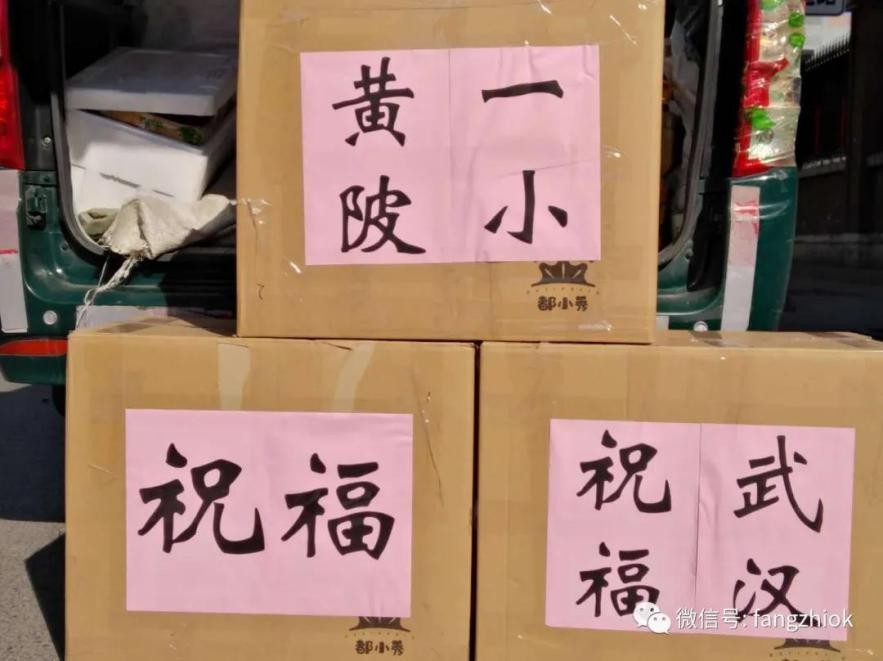 黄陂
一小
都小秀
祝福
都小秀
祝福
武汉
微信号: fangzhiok